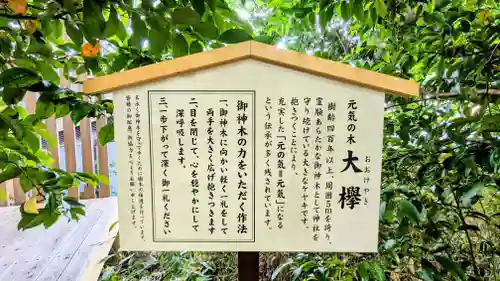 元気の木
おおけやき
大欅
樹齢四百年以上、周囲5mを誇り、
霊験あらたかな御神木として神社を
守り続けている大きなケヤキです。
抱きつくことにより、
充実した「元の気＝元気」になる
という伝承が多く残されています。
御神木の力をいただく作法
一、御神木に向かい軽く一礼をして
両手を大きく広げ抱きつきます
二、目を閉じて、心を穏やかにして
深呼吸します。
三、一歩下がって深く御一礼ください